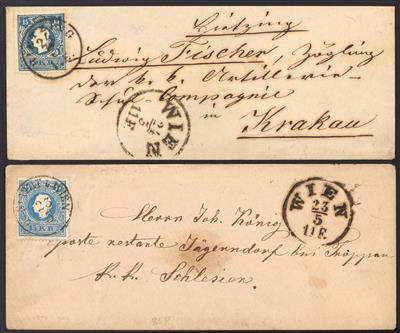 Hietzing
Ludwig Fischer, Zögling
der k. k. Artillerie-
Schul-Compagnie
in
Krakau
15 KR
WIEN
11 F.
15 KR
WIEN
23
5
11 F.
Herrn Joh. König
poste restante Jägerndorf bei Troppau
k. k. Schlesien